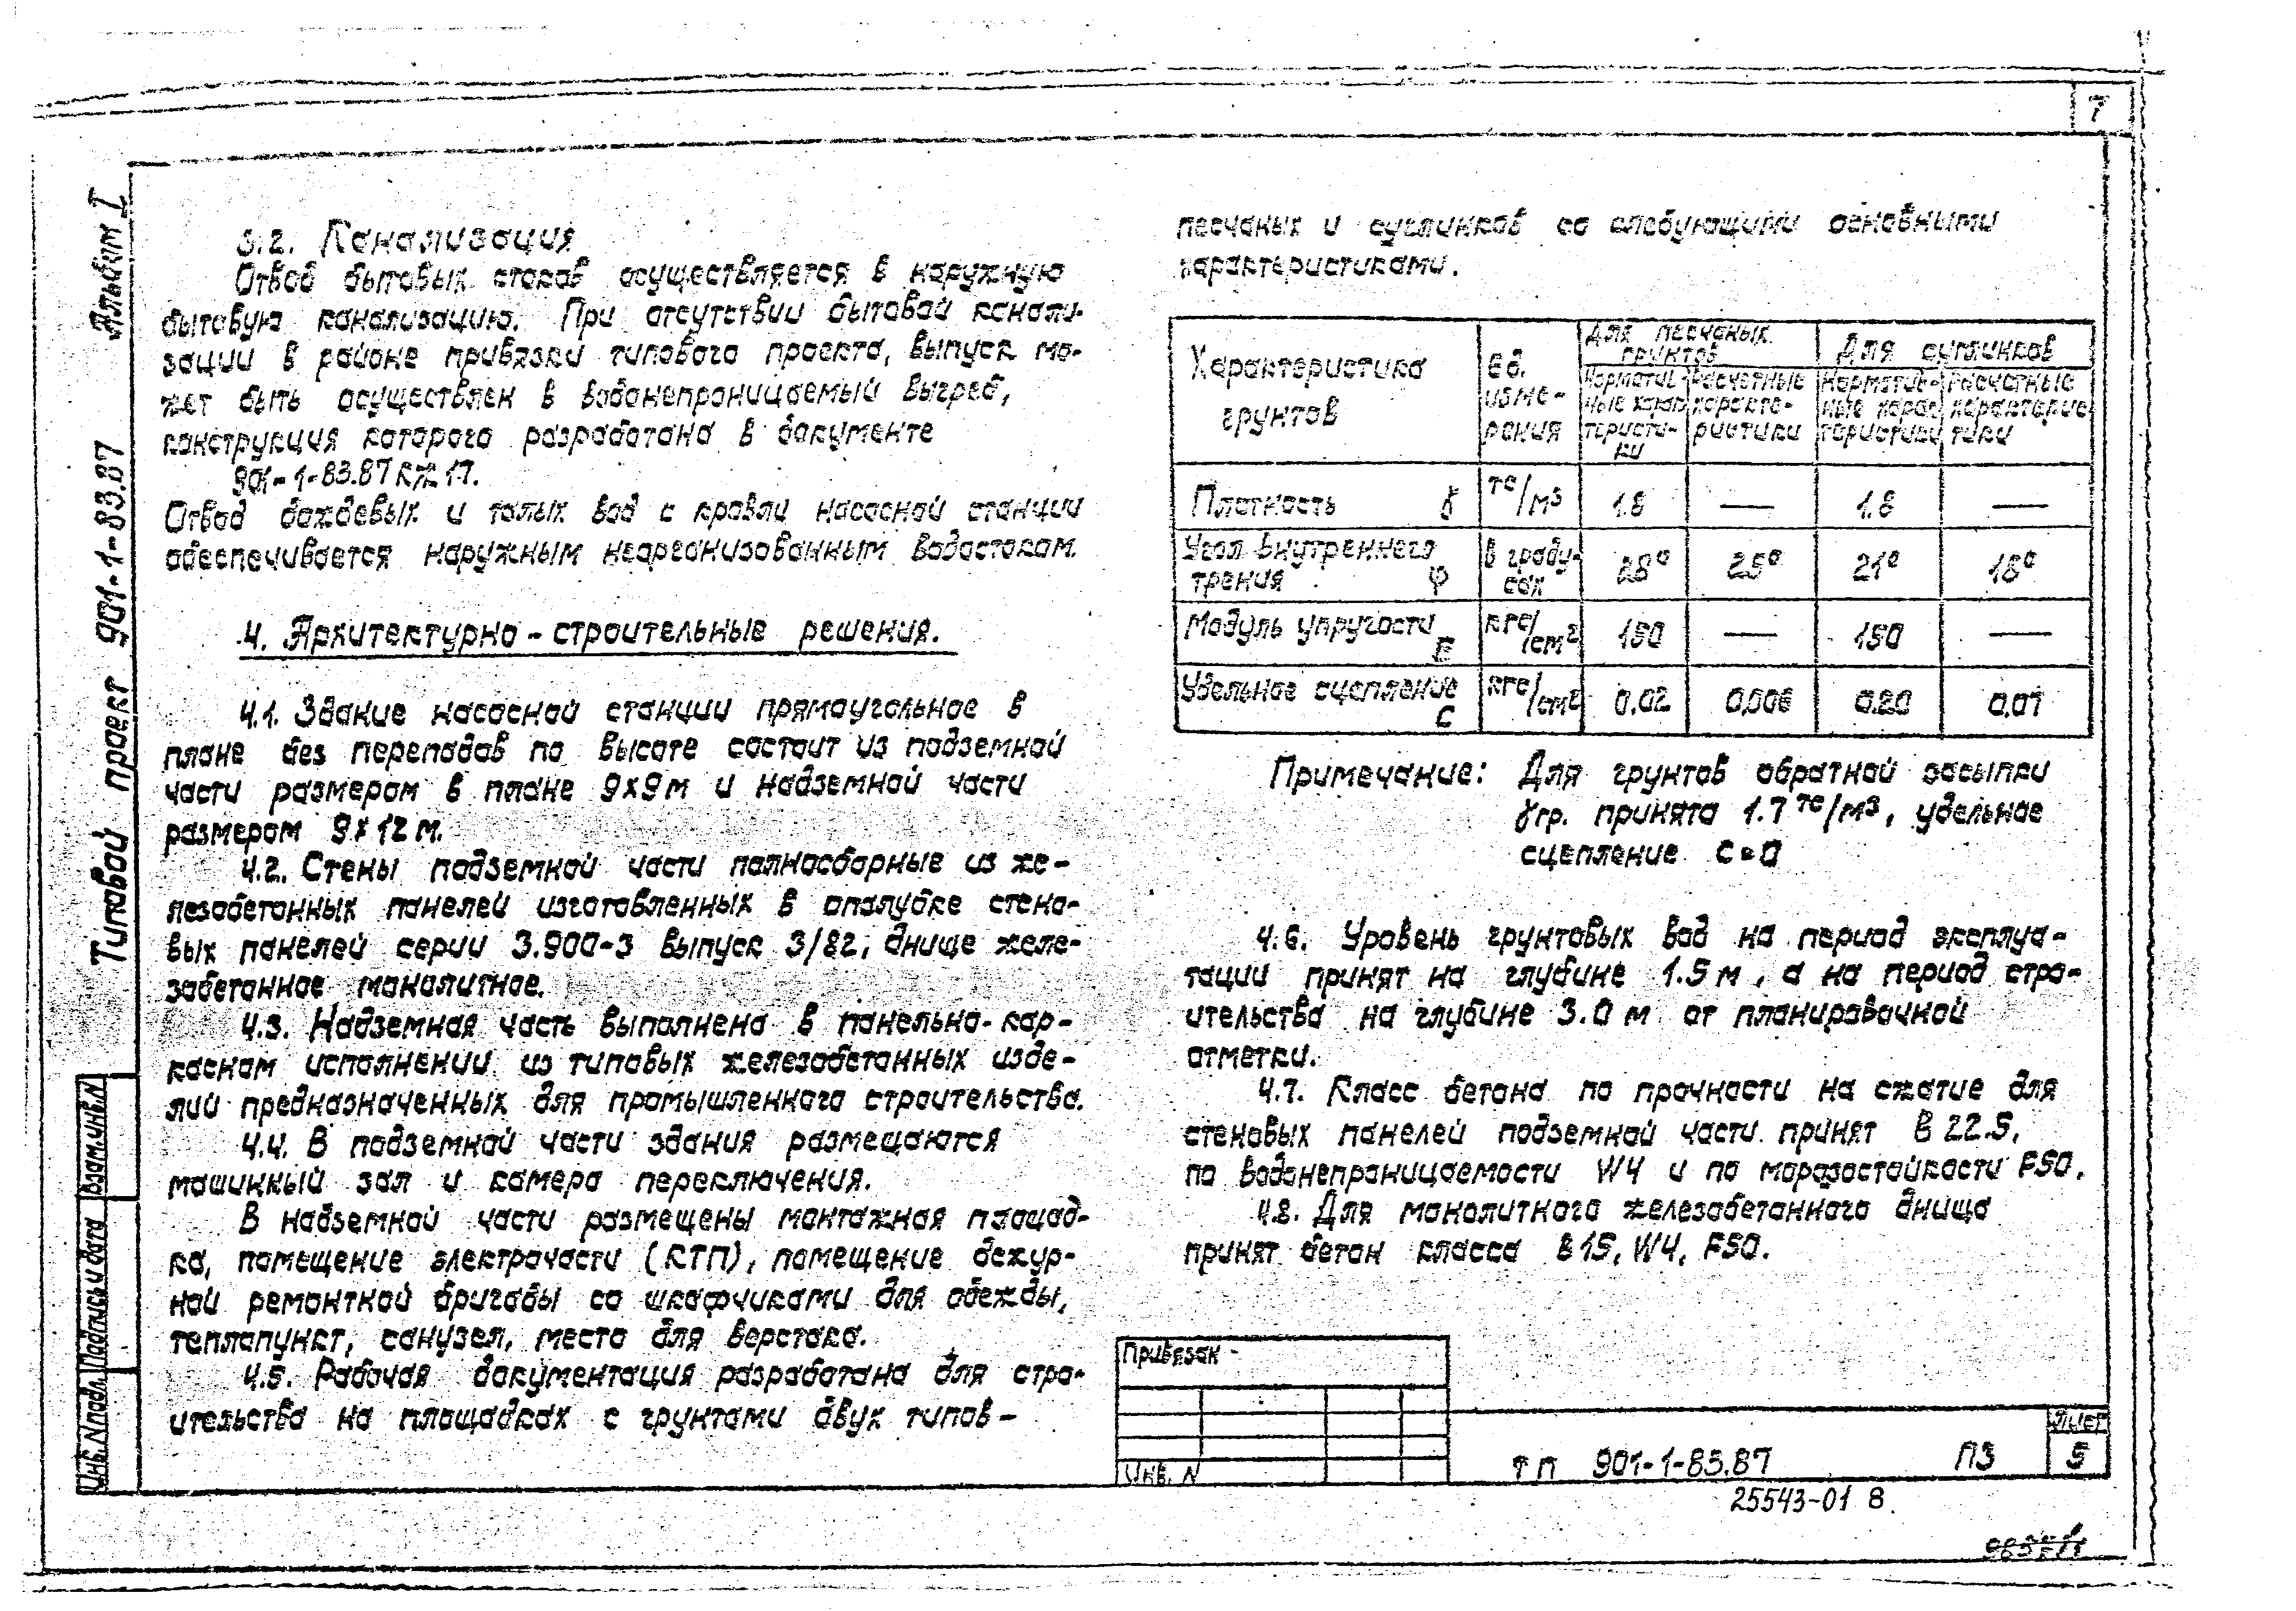 7
Альбом I
Типовой проект 901-1-83.87
3.2. Канализация
Отвод бытовых стоков осуществляется в наружную
бытовую канализацию. При отсутствии бытовой канали-
зации в районе привязки типового проекта, выпуск мо-
жет быть осуществлен в водонепроницаемый выгреб,
конструкция которого разработана в документе
901-1-83.87 КЖ 17.
Отвод дождевых и талых вод с кровли насосной станции
обеспечивается наружным неорганизованным водостоком.
4. Архитектурно-строительные решения.
4.1. Здание насосной станции прямоугольное в
плане без перепадов по высоте состоит из подземной
части размером в плане 9х9м и надземной части
размером 9х12м.
4.2. Стены подземной части полносборные из же-
лезобетонных панелей изготовленных в опалубке стено-
вых панелей серии 3.900-3 выпуск 3/82, днище желе-
зобетонное монолитное.
4.3. Надземная часть выполнена в панельно-кар-
касном исполнении из типовых железобетонных изде-
лий предназначенных для промышленного строительства.
4.4. В подземной части здания размещаются
машинный зал и камера переключения.
В надземной части размещены монтажная площад-
ка, помещение электрочасти (КТП), помещение дежур-
ной ремонтной бригады со шкафчиками для одежды,
теплопункт, санузел, место для верстака.
4.5. Рабочая документация разработана для стро-
ительства на площадках с грунтами двух типов-
песчаных и суглинков со следующими основными
характеристиками.
Характеристика грунтов | Ед. изме-рения | Для песчаных грунтов | Для суглинков
Норматив-ные харак теристи-ки | Расчетные характе-ристики | Норматив-ные харак теристики | Расчетные характерис тики
Плотность γ | тс/м3 | 1.8 | — | 1.8 | —
Угол внутреннего трения φ | в граду-сах | 28° | 25° | 21° | 18°
Модуль упругости E | кгс/см2 | 150 | — | 150 | —
Удельное сцепление C | кгс/см2 | 0.02 | 0,006 | 0.20 | 0,07
Примечание: Для грунтов обратной засыпки
γгр. принята 1.7 тс/м3, удельное
сцепление С=0
4.6. Уровень грунтовых вод на период эксплуа-
тации принят на глубине 1.5м, а на период стро-
ительства на глубине 3.0 м от планировочной
отметки.
4.7. Класс бетона по прочности на сжатие для
стеновых панелей подземной части принят В 22.5,
по водонепроницаемости W4 и по морозостойкости F50.
4.8. Для монолитного железобетонного днища
принят бетон класса В15, W4, F50.
Взам.инв.N
Подпись и дата
Инв.Nподл.
Привязан
Инв. N
ТП 901-1-83.87 ПЗ
Лист
5
25543-01 8